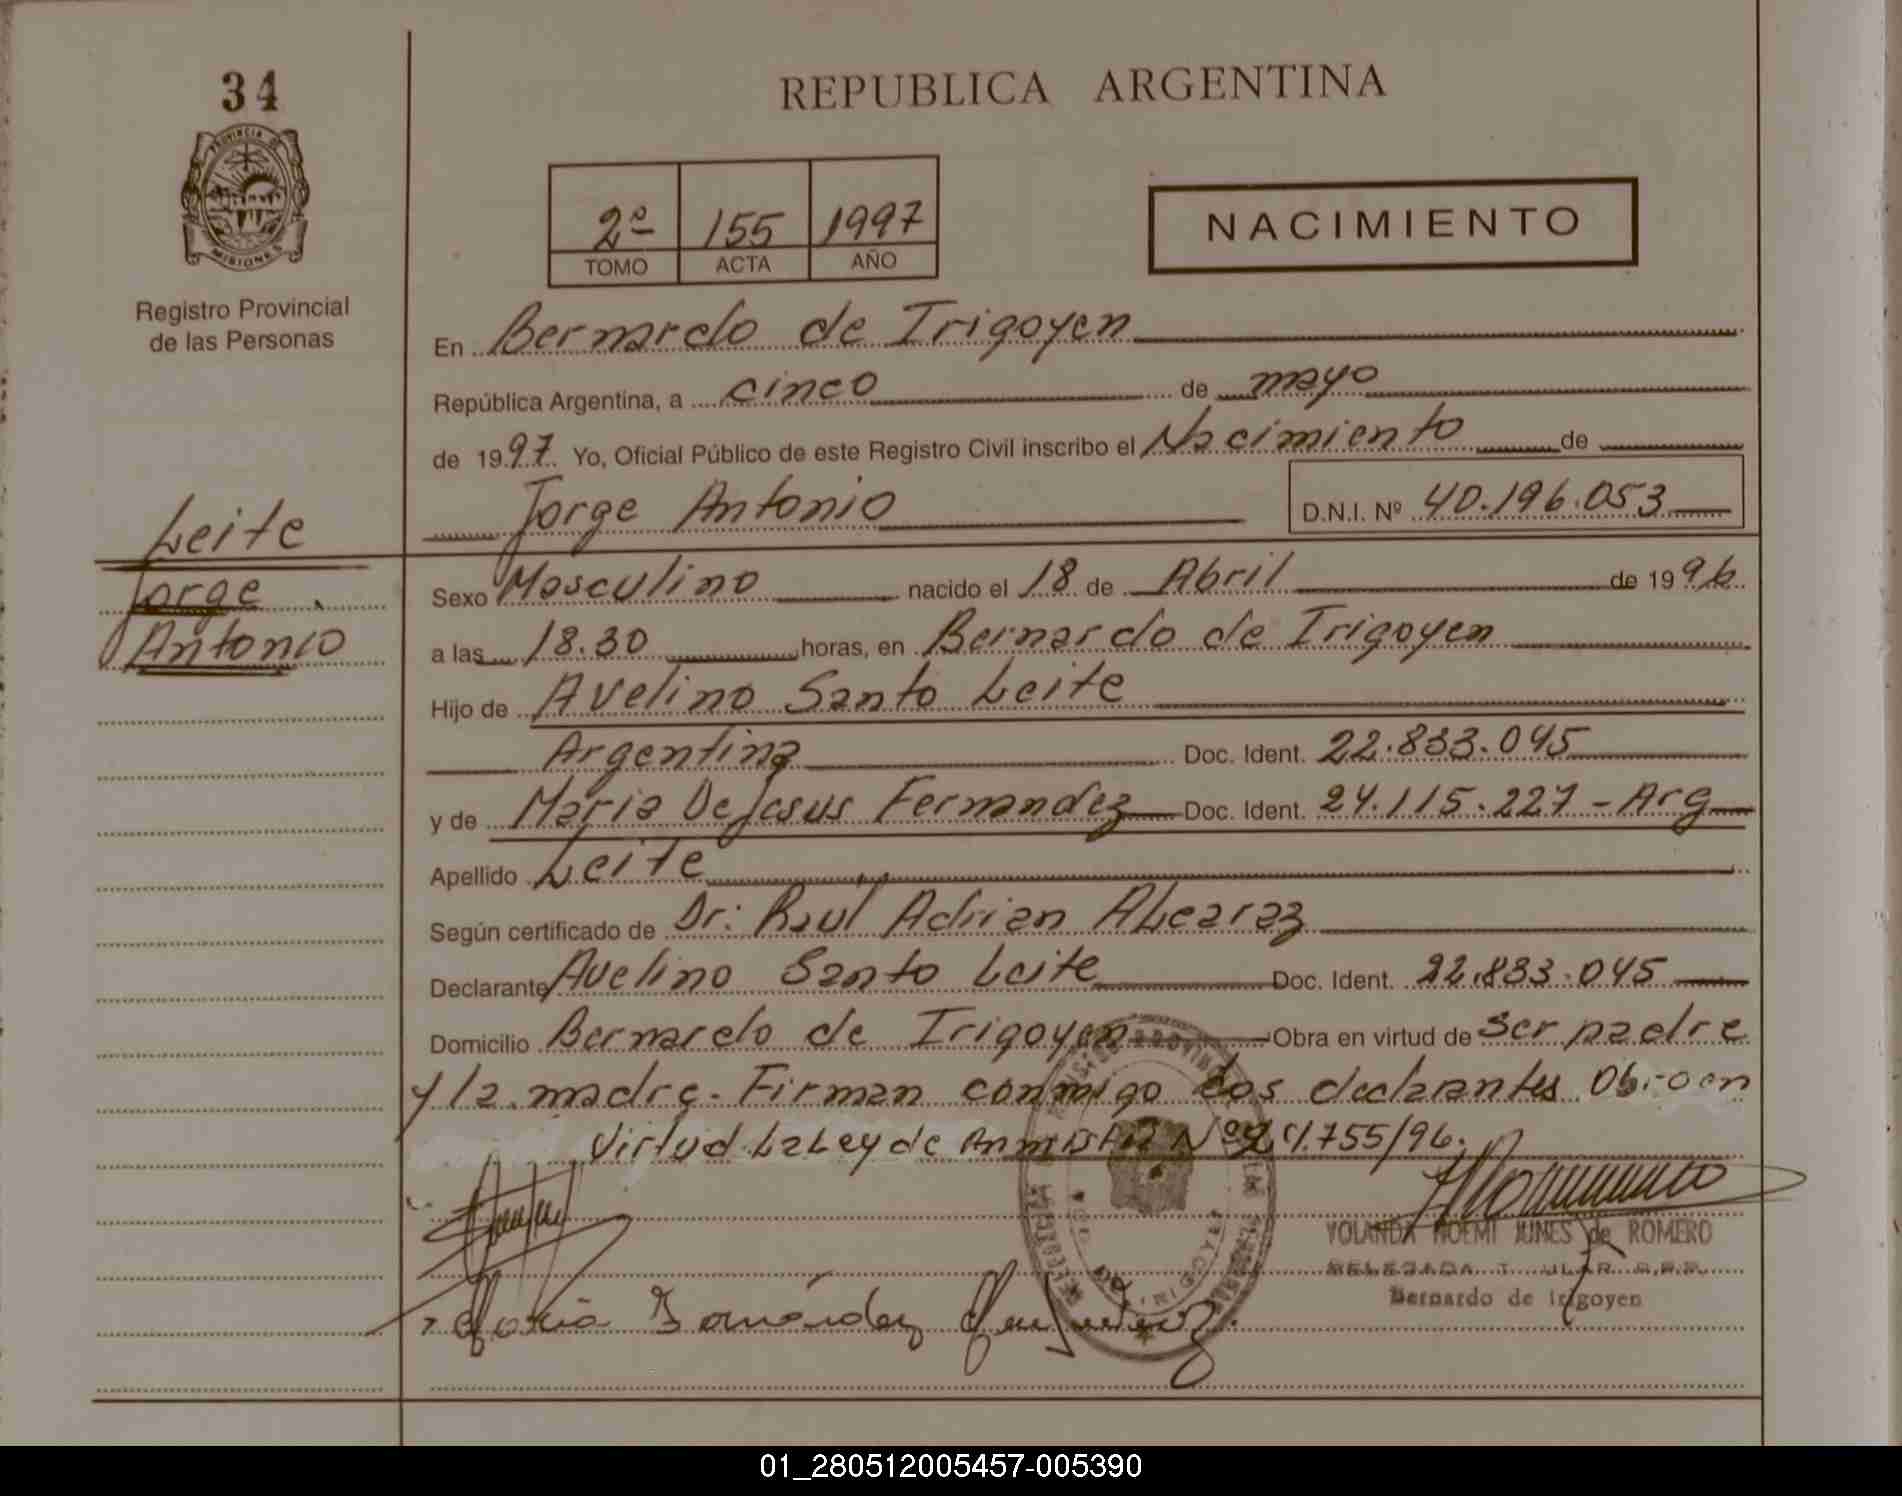 34
REPUBLICA ARGENTINA
PROVINCIA DE
MISIONES
Registro Provincial
de las Personas
2º 155 1997
TOMO ACTA AÑO
NACIMIENTO
En Bernardo de Irigoyen
República Argentina, a cinco de mayo
de 1997 Yo, Oficial Público de este Registro Civil inscribo el Nacimiento de
Jorge Antonio D.N.I. Nº 40.196.053
Leite
Jorge
Antonio
Sexo Masculino nacido el 18 de Abril de 1996
a las 18.30 horas, en Bernardo de Irigoyen
Hijo de Avelino Santo Leite
Argentina Doc. Ident. 22.833.045
y de Maria De Jesus Fernandez Doc. Ident. 24.115.227 - Arg
Apellido Leite
Según certificado de Dr: Raúl Adrian ALcaraz
Declarante Avelino Santo Leite Doc. Ident. 22.833.045
Domicilio Bernardo de Irigoyen Obra en virtud de ser padre
y la madre. Firman conmigo Los declarantes
virtud La Ley de Nº 24.755/96.
YOLANDA NOEMI JUNES de ROMERO
DELEGADA TITULAR R.P.P.
Bernardo de Irigoyen
Maria Fernandez
01_280512005457-005390